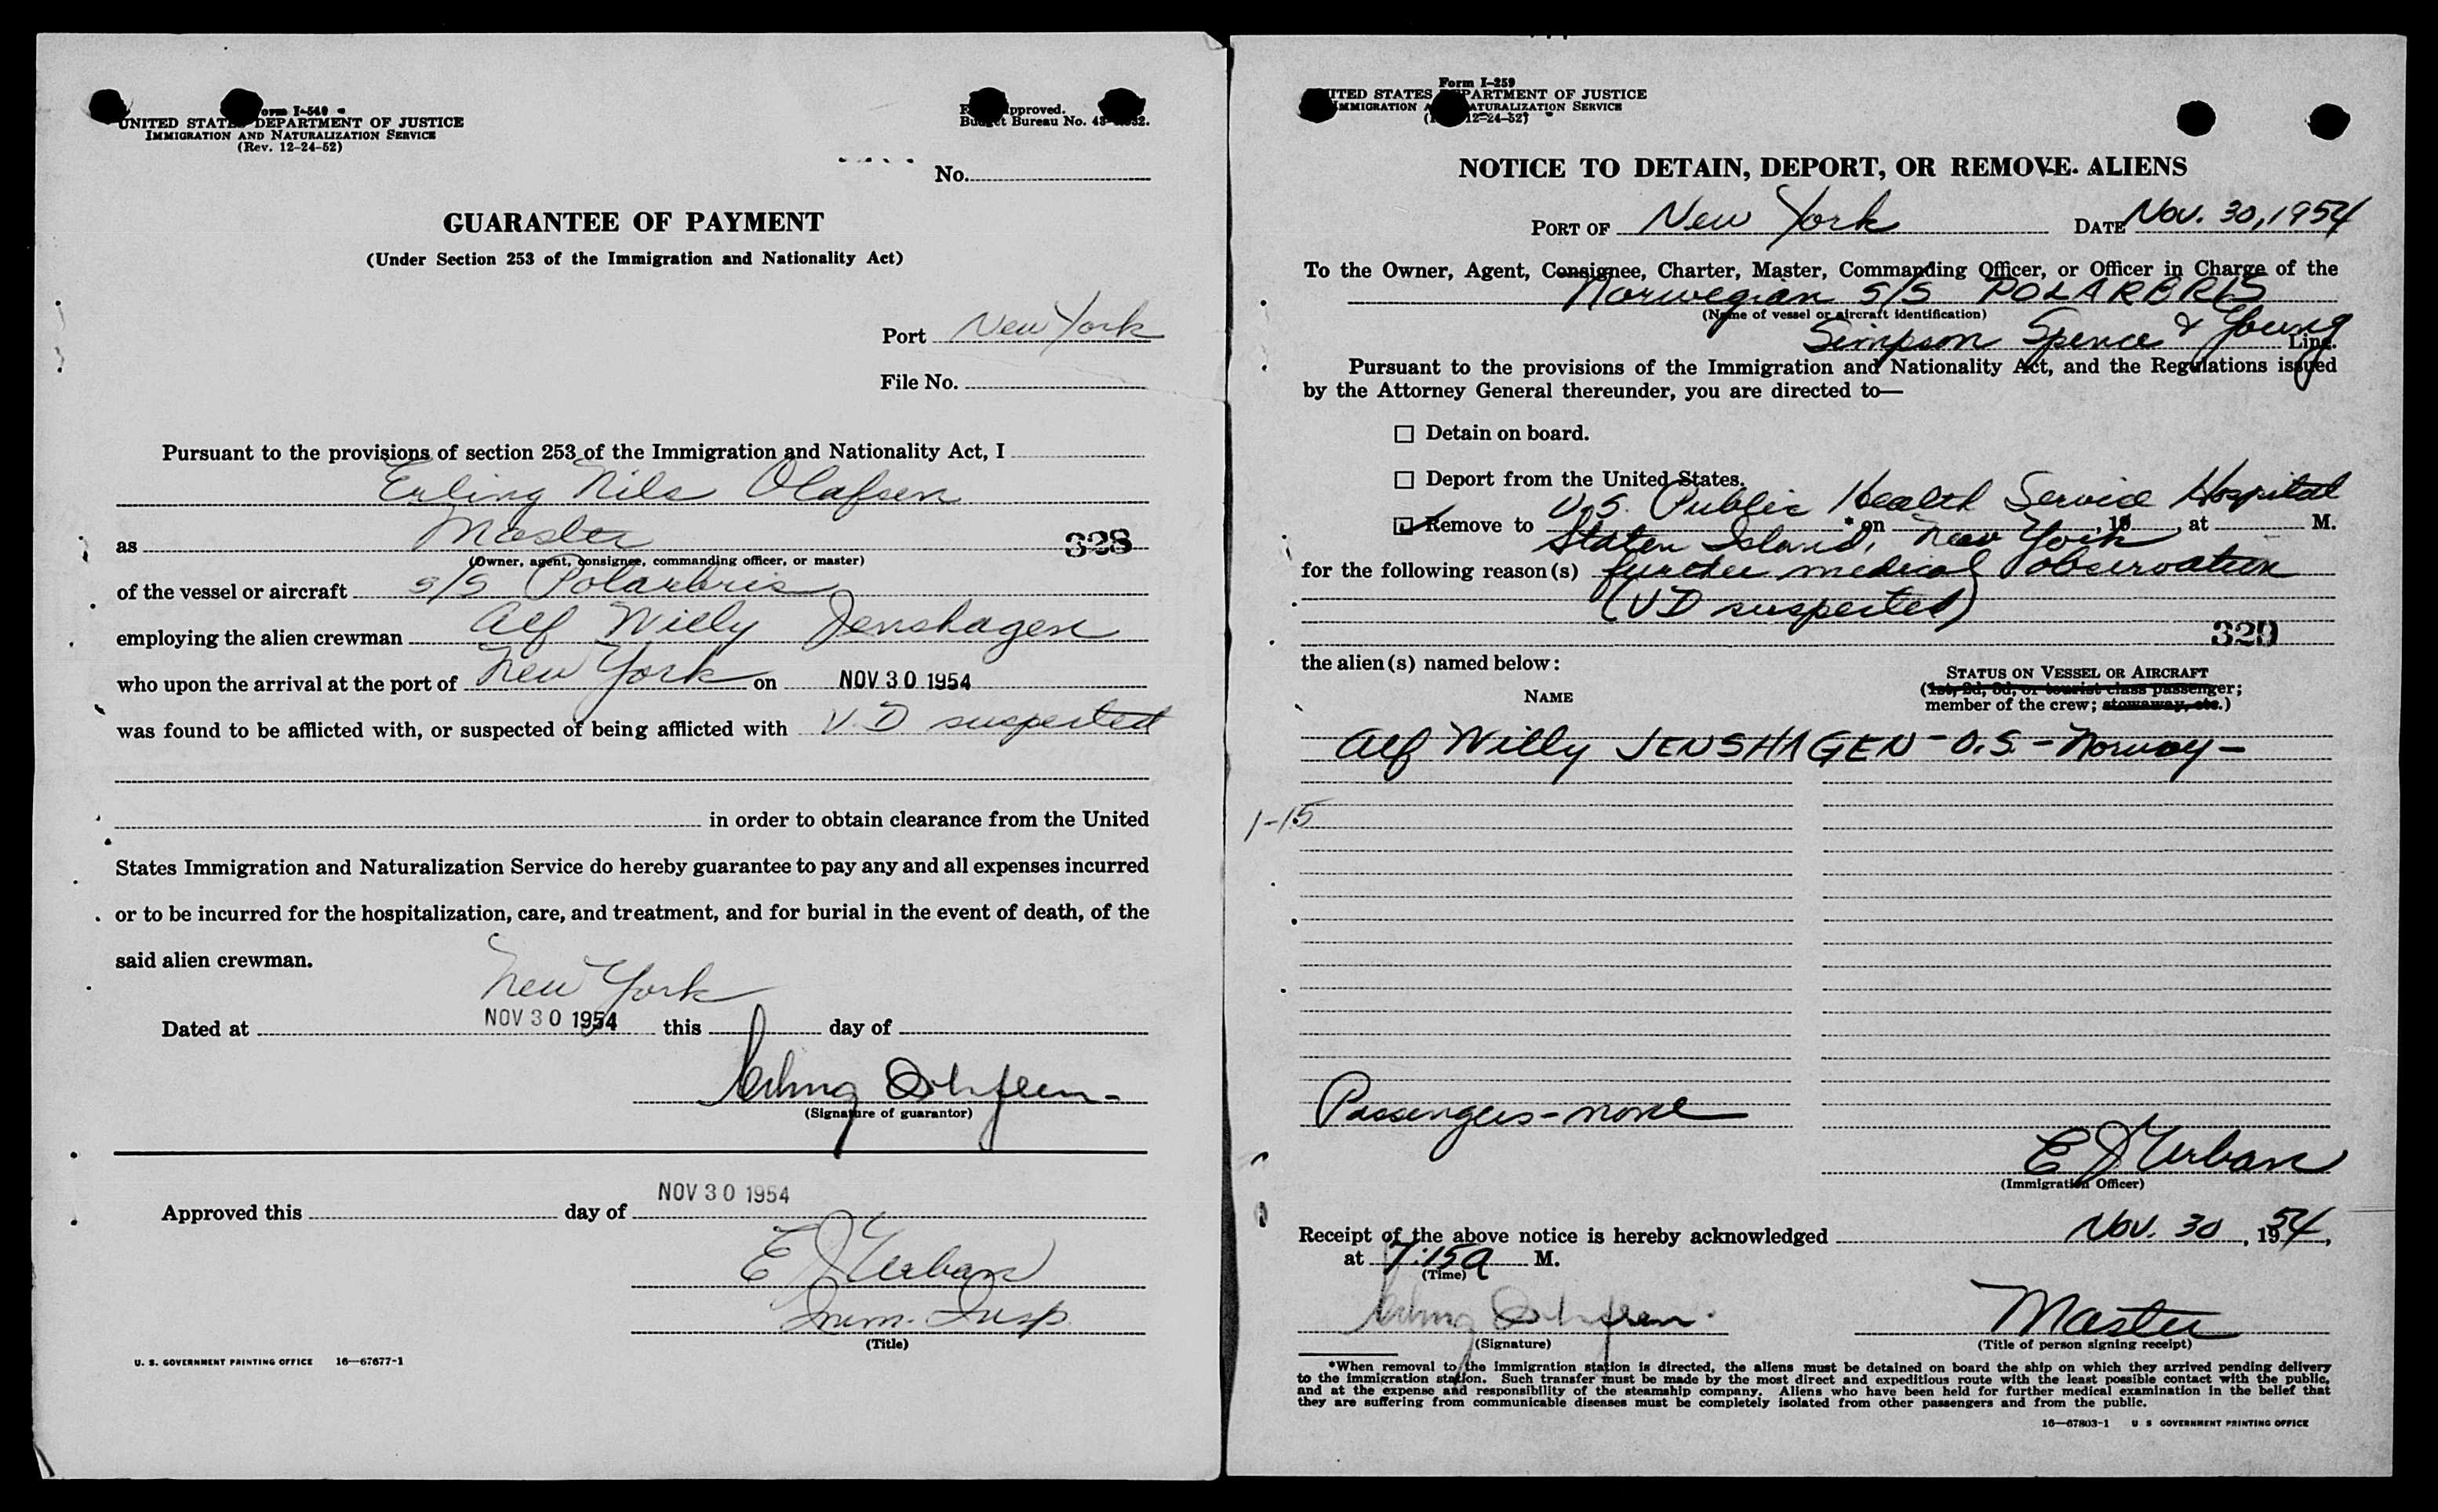 Form I-510
UNITED STATES DEPARTMENT OF JUSTICE
IMMIGRATION AND NATURALIZATION SERVICE
(Rev. 12-24-52)
Approved.
Budget Bureau No. 43-
No.
GUARANTEE OF PAYMENT
(Under Section 253 of the Immigration and Nationality Act)
Port New York
File No.
Pursuant to the provisions of section 253 of the Immigration and Nationality Act, I
Erling Nils Olafsen
as Master 328
(Owner, agent, consignee, commanding officer, or master)
of the vessel or aircraft s/s Polarbris
employing the alien crewman Alf Willy Jenshagen
who upon the arrival at the port of New York on NOV 30 1954
was found to be afflicted with, or suspected of being afflicted with V.D suspected
in order to obtain clearance from the United
States Immigration and Naturalization Service do hereby guarantee to pay any and all expenses incurred
or to be incurred for the hospitalization, care, and treatment, and for burial in the event of death, of the
said alien crewman.
New York
Dated at NOV 30 1954 this day of
Erling Olafsen
(Signature of guarantor)
NOV 30 1954
Approved this day of
E J Urban
Imm. Insp.
(Title)
U. S. GOVERNMENT PRINTING OFFICE 16—67677-1
Form I-259
UNITED STATES DEPARTMENT OF JUSTICE
IMMIGRATION AND NATURALIZATION SERVICE
12-24-52)
NOTICE TO DETAIN, DEPORT, OR REMOVE ALIENS
PORT OF New York DATE Nov. 30, 1954
To the Owner, Agent, Consignee, Charter, Master, Commanding Officer, or Officer in Charge of the
Norwegian S/S POLARBRIS
(Name of vessel or aircraft identification)
Simpson Spence & Young Line.
Pursuant to the provisions of the Immigration and Nationality Act, and the Regulations issued
by the Attorney General thereunder, you are directed to—
Detain on board.
Deport from the United States.
U.S. Public Health Service Hospital
Remove to * on , 19 , at M.
Staten Island, New York
for the following reason(s) further medical observation
(VD suspected)
329
the alien(s) named below:
STATUS ON VESSEL OR AIRCRAFT
NAME
(1st, 2d, 3d, or tourist class passenger;
member of the crew; stowaway, etc.)
Alf Willy JENSHAGEN - O.S. - Norway -
1-15
Passengers - none
E J Urban
(Immigration Officer)
Receipt of the above notice is hereby acknowledged Nov. 30, 1954,
at 7:15 a M.
(Time)
Erling Olafsen. Master
(Signature) (Title of person signing receipt)
*When removal to the immigration station is directed, the aliens must be detained on board the ship on which they arrived pending delivery
to the immigration station. Such transfer must be made by the most direct and expeditious route with the least possible contact with the public,
and at the expense and responsibility of the steamship company. Aliens who have been held for further medical examination in the belief that
they are suffering from communicable diseases must be completely isolated from other passengers and from the public.
16—67803-1 U. S. GOVERNMENT PRINTING OFFICE